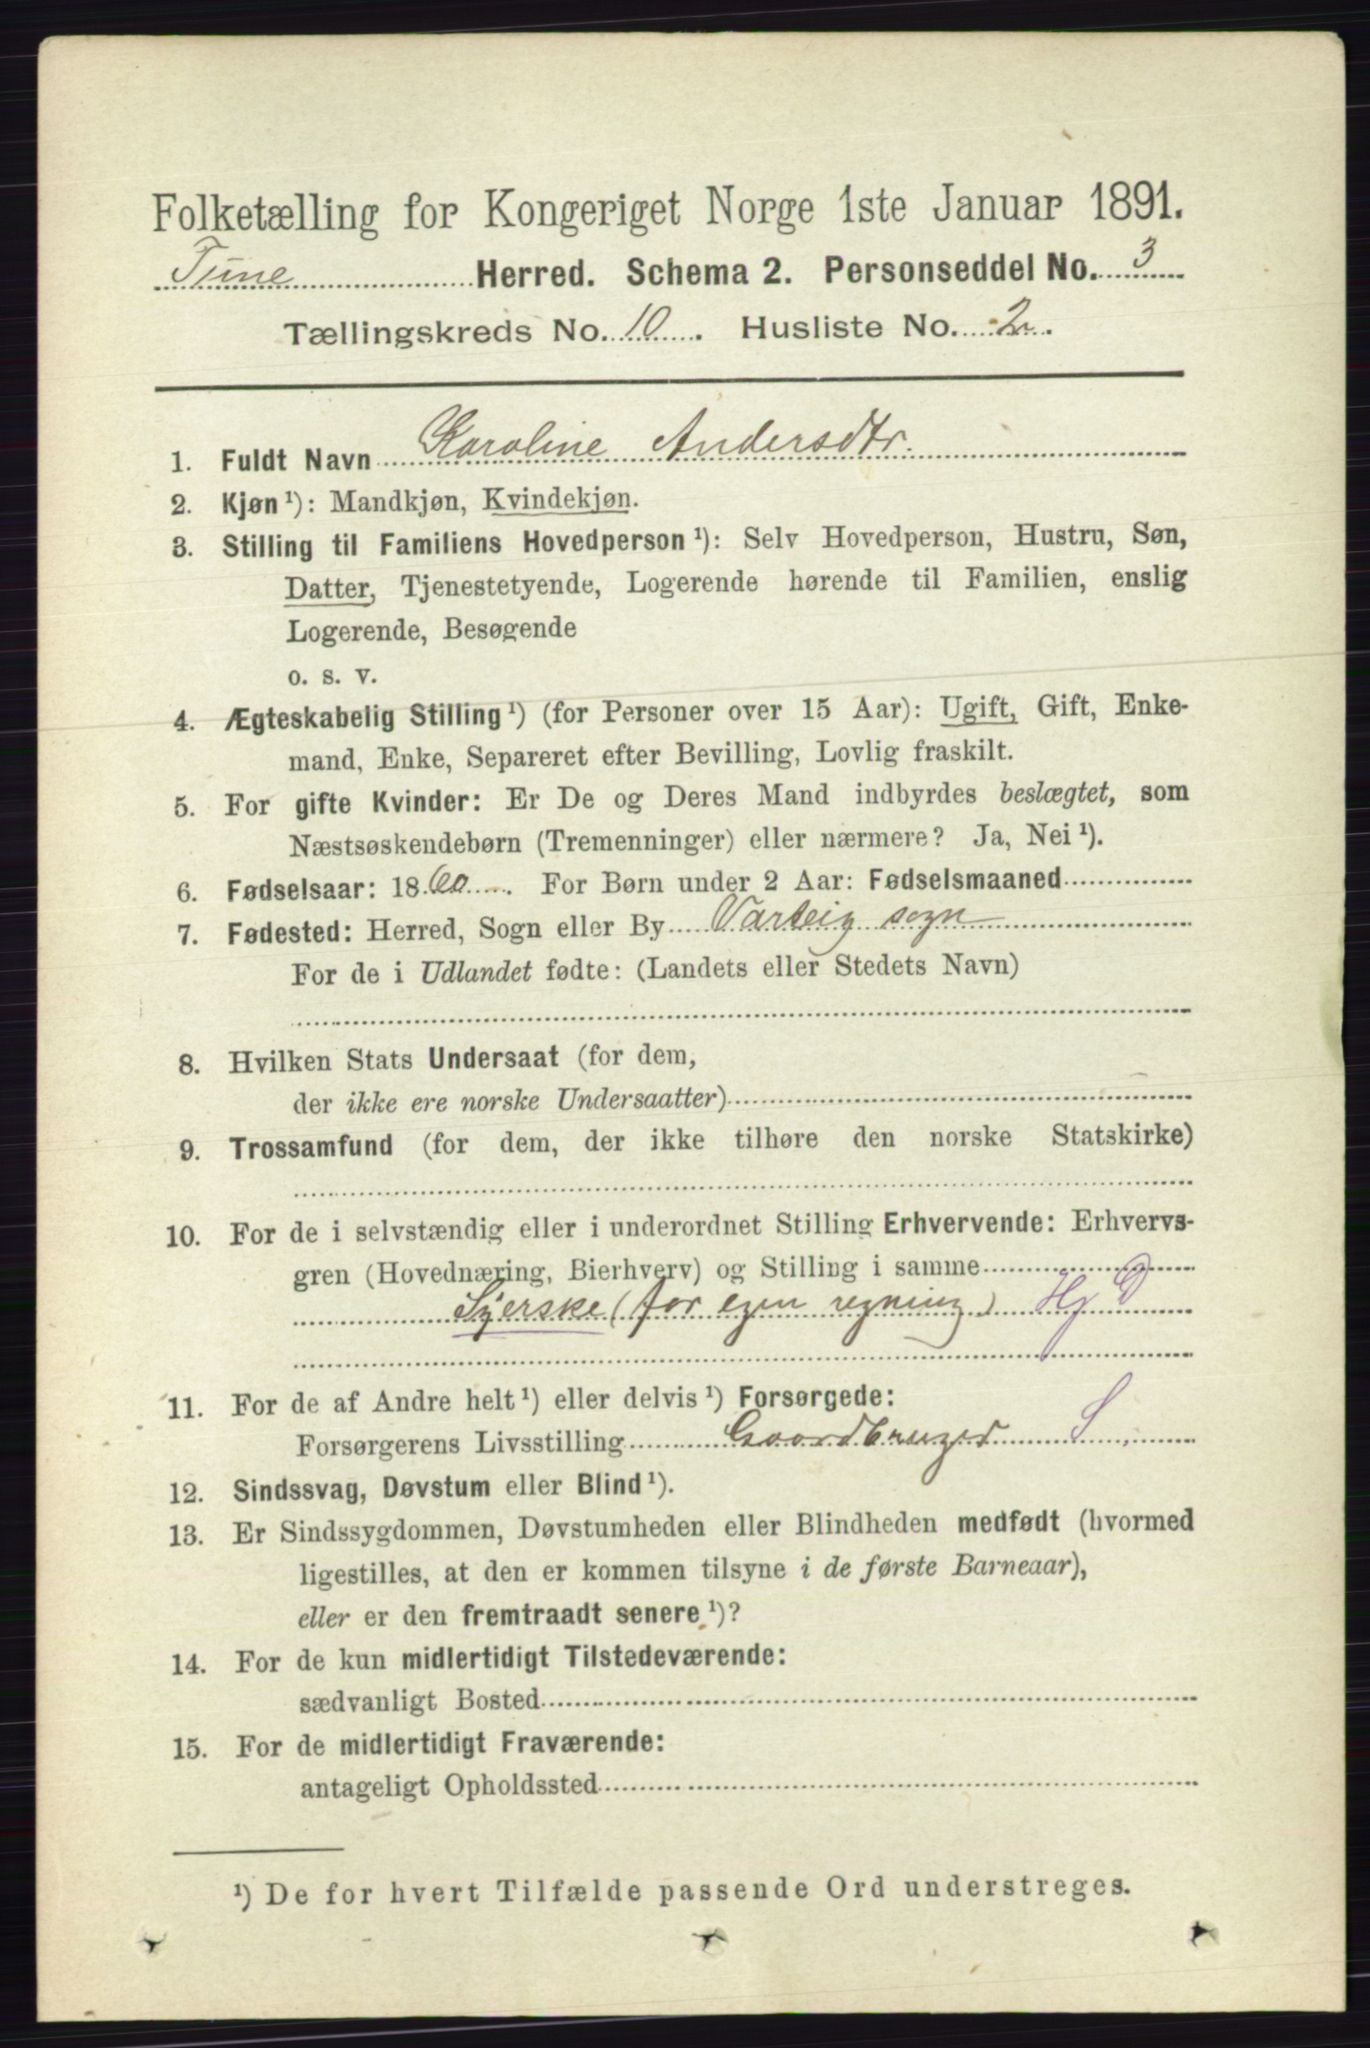 Folketælling for Kongeriget Norge 1ste Januar 1891.
Tune Herred. Schema 2. Personseddel No. 3
Tællingskreds No. 10. Husliste No. 2.
1. Fuldt Navn Karoline Andersdtr.
2. Kjøn ¹): Mandkjøn, Kvindekjøn.
3. Stilling til Familiens Hovedperson ¹): Selv Hovedperson, Hustru, Søn,
Datter, Tjenestetyende, Logerende hørende til Familien, enslig
Logerende, Besøgende
o. s. v.
4. Ægteskabelig Stilling ¹) (for Personer over 15 Aar): Ugift, Gift, Enke-
mand, Enke, Separeret efter Bevilling, Lovlig fraskilt.
5. For gifte Kvinder: Er De og Deres Mand indbyrdes beslægtet, som
Næstsøskendebørn (Tremenninger) eller nærmere? Ja, Nei ¹).
6. Fødselsaar: 1860. For Børn under 2 Aar: Fødselsmaaned
7. Fødested: Herred, Sogn eller By Varteig sogn
For de i Udlandet fødte: (Landets eller Stedets Navn)
8. Hvilken Stats Undersaat (for dem,
der ikke ere norske Undersaatter)
9. Trossamfund (for dem, der ikke tilhøre den norske Statskirke)
10. For de i selvstændig eller i underordnet Stilling Erhvervende: Erhvervs-
gren (Hovednæring, Bierhverv) og Stilling i samme
Syerske (for egen regning) Hj D
11. For de af Andre helt ¹) eller delvis ¹) Forsørgede:
Forsørgerens Livsstilling Gaardbruger S
12. Sindssvag, Døvstum eller Blind ¹).
13. Er Sindssygdommen, Døvstumheden eller Blindheden medfødt (hvormed
ligestilles, at den er kommen tilsyne i de første Barneaar),
eller er den fremtraadt senere ¹)?
14. For de kun midlertidigt Tilstedeværende:
sædvanligt Bosted
15. For de midlertidigt Fraværende:
antageligt Opholdssted
¹) De for hvert Tilfælde passende Ord understreges.